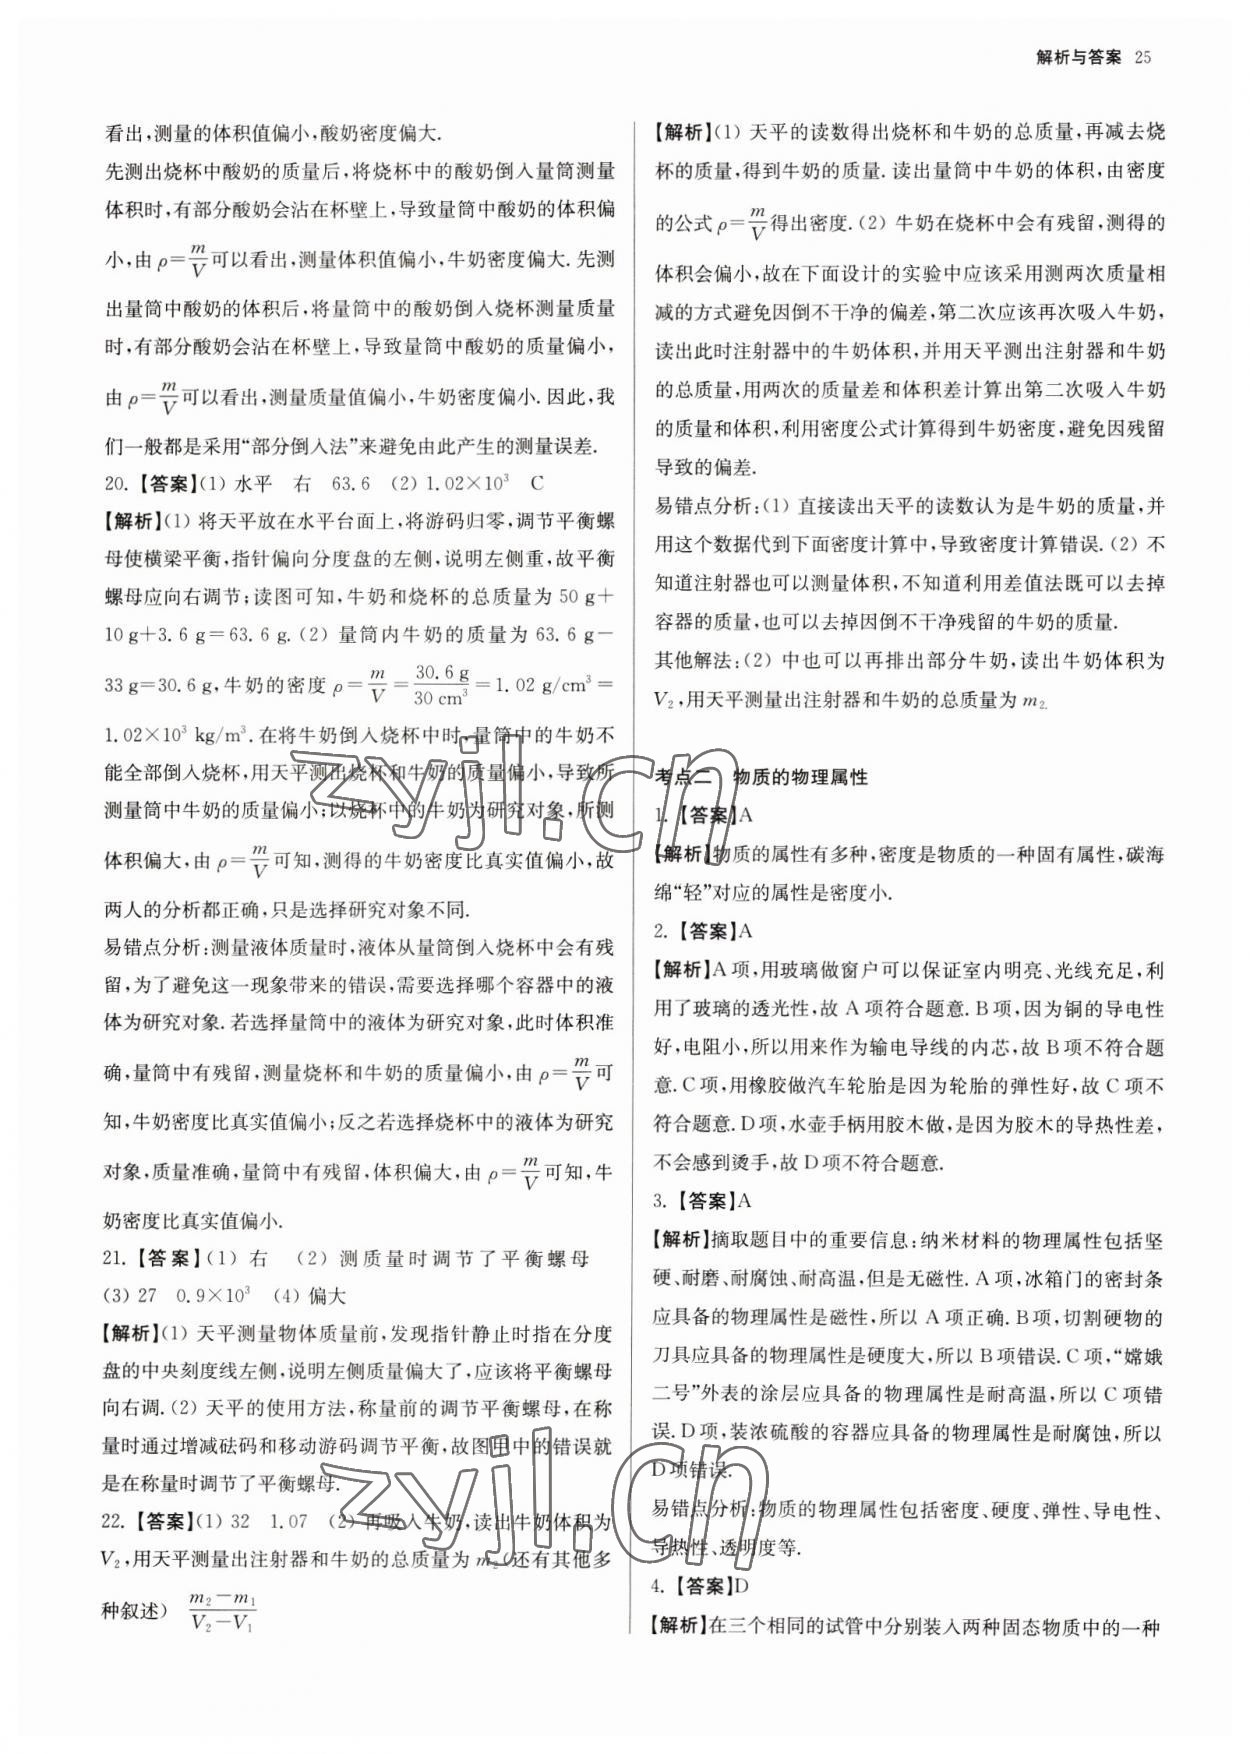 解析与答案 25
看出,测量的体积值偏小,酸奶密度偏大.
先测出烧杯中酸奶的质量后,将烧杯中的酸奶倒入量筒测量
体积时,有部分酸奶会沾在杯壁上,导致量筒中酸奶的体积偏
小,由 ρ=m/V可以看出,测量体积值偏小,牛奶密度偏大. 先测
出量筒中酸奶的体积后,将量筒中的酸奶倒入烧杯测量质量
时,有部分酸奶会沾在杯壁上,导致量筒中酸奶的质量偏小,
由 ρ=m/V可以看出,测量质量值偏小,牛奶密度偏小. 因此,我
们一般都是采用“部分倒入法”来避免由此产生的测量误差.
20.【答案】(1) 水平 右 63.6 (2) 1.02×10³ C
【解析】(1) 将天平放在水平台面上,将游码归零,调节平衡螺
母使横梁平衡,指针偏向分度盘的左侧,说明左侧重,故平衡
螺母应向右调节;读图可知,牛奶和烧杯的总质量为 50 g+
10 g+3.6 g=63.6 g.(2) 量筒内牛奶的质量为 63.6 g-
33 g=30.6 g,牛奶的密度 ρ=m/V=30.6 g/30 cm³=1.02 g/cm³=
1.02×10³ kg/m³.在将牛奶倒入烧杯中时,量筒中的牛奶不
能全部倒入烧杯,用天平测出烧杯和牛奶的质量偏小,导致所
测量筒中牛奶的质量偏小;以烧杯中的牛奶为研究对象,所测
体积偏大,由 ρ=m/V可知,测得的牛奶密度比真实值偏小,故
两人的分析都正确,只是选择研究对象不同.
易错点分析:测量液体质量时,液体从量筒倒入烧杯中会有残
留,为了避免这一现象带来的错误,需要选择哪个容器中的液
体为研究对象. 若选择量筒中的液体为研究对象,此时体积准
确,量筒中有残留,测量烧杯和牛奶的质量偏小,由 ρ=m/V可
知,牛奶密度比真实值偏小;反之若选择烧杯中的液体为研究
对象,质量准确,量筒中有残留,体积偏大,由 ρ=m/V可知,牛
奶密度比真实值偏小.
21.【答案】(1) 右 (2) 测质量时调节了平衡螺母
(3) 27 0.9×10³ (4) 偏大
【解析】(1) 天平测量物体质量前,发现指针静止时指在分度
盘的中央刻度线左侧,说明左侧质量偏大了,应该将平衡螺母
向右调.(2) 天平的使用方法,称量前的调节平衡螺母,在称
量时通过增减砝码和移动游码调节平衡,故图甲中的错误就
是在称量时调节了平衡螺母.
22.【答案】(1) 32 1.07 (2) 再吸入牛奶,读出牛奶体积为
V₂,用天平测量出注射器和牛奶的总质量为 m₂(还有其他多
种叙述) (m₂-m₁)/(V₂-V₁)
【解析】(1) 天平的读数得出烧杯和牛奶的总质量,再减去烧
杯的质量,得到牛奶的质量. 读出量筒中牛奶的体积,由密度
的公式 ρ=m/V得出密度.(2) 牛奶在烧杯中会有残留,测得的
体积会偏小,故在下面设计的实验中应该采用测两次质量相
减的方式避免因倒不干净的偏差,第二次应该再次吸入牛奶,
读出此时注射器中的牛奶体积,并用天平测出注射器和牛奶
的总质量,用两次的质量差和体积差计算出第二次吸入牛奶
的质量和体积,利用密度公式计算得到牛奶密度,避免因残留
导致的偏差.
易错点分析:(1) 直接读出天平的读数认为是牛奶的质量,并
用这个数据代到下面密度计算中,导致密度计算错误.(2) 不
知道注射器也可以测量体积,不知道利用差值法既可以去掉
容器的质量,也可以去掉因倒不干净残留的牛奶的质量.
其他解法:(2) 中也可以再排出部分牛奶,读出牛奶体积为
V₂,用天平测量出注射器和牛奶的总质量为 m₂.
考点二 物质的物理属性
1.【答案】A
【解析】物质的属性有多种,密度是物质的一种固有属性,碳海
绵“轻”对应的属性是密度小.
2.【答案】A
【解析】A 项,用玻璃做窗户可以保证室内明亮、光线充足,利
用了玻璃的透光性,故 A 项符合题意. B 项,因为铜的导电性
好,电阻小,所以用来作为输电导线的内芯,故 B 项不符合题
意. C 项,用橡胶做汽车轮胎是因为轮胎的弹性好,故 C 项不
符合题意. D 项,水壶手柄用胶木做,是因为胶木的导热性差,
不会感到烫手,故 D 项不符合题意.
3.【答案】A
【解析】摘取题目中的重要信息:纳米材料的物理属性包括坚
硬、耐磨、耐腐蚀、耐高温,但是无磁性. A 项,冰箱门的密封条
应具备的物理属性是磁性,所以 A 项正确. B 项,切割硬物的
刀具应具备的物理属性是硬度大,所以 B 项错误. C 项,“嫦娥
二号”外表的涂层应具备的物理属性是耐高温,所以 C 项错
误. D 项,装浓硫酸的容器应具备的物理属性是耐腐蚀,所以
D 项错误.
易错点分析:物质的物理属性包括密度、硬度、弹性、导电性、
导热性、透明度等.
4.【答案】D
【解析】在三个相同的试管中分别装入两种固态物质中的一种
zyjl.cn
zyjl.cn